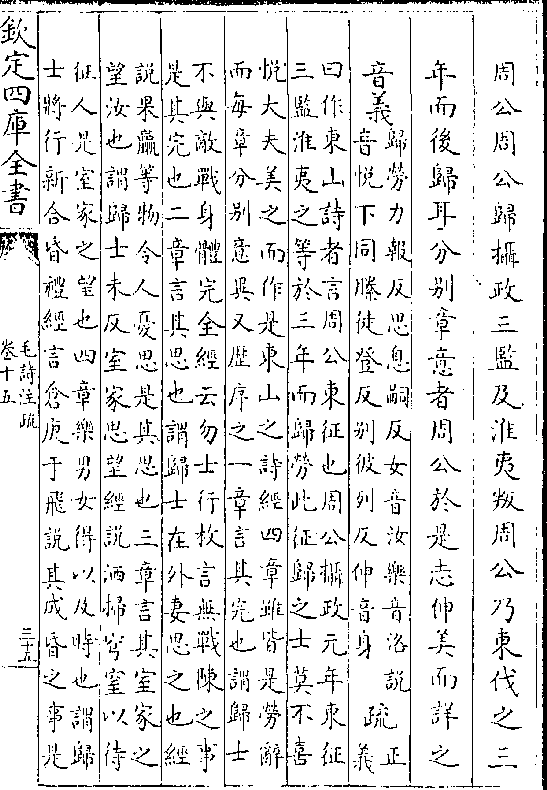 周公周公歸攝政三監及淮夷叛周公乃東伐之三
年而後歸耳分別章意者周公於是志伸美而詳之
音義
歸勞力報反思息嗣反女音汝樂音洛說
音悅下同滕徒登反別彼列反伸音身
疏
正
義
曰作東山詩者言周公東征也周公攝政元年東征
三監淮夷之等於三年而歸勞此征歸之士莫不喜
悅大夫美之而作是東山之詩經四章雖皆是勞辭
而每章分別意異又歷序之一章言其完也謂歸士
不與敵戰身體完全經云勿士行枚言無戰陳之事
是其完也二章言其思也謂歸士在外妻思之也經
說果臝等物令人憂思是其思也三章言其室家之
望汝也謂歸士未反室家思望經說洒掃穹窒以待
征人是室家之望也四章樂男女得以及時也謂歸
士將行新合昏禮經言倉庚于飛說其成昏之事是
欽定四庫全書
毛詩注疏
卷十五
三十五